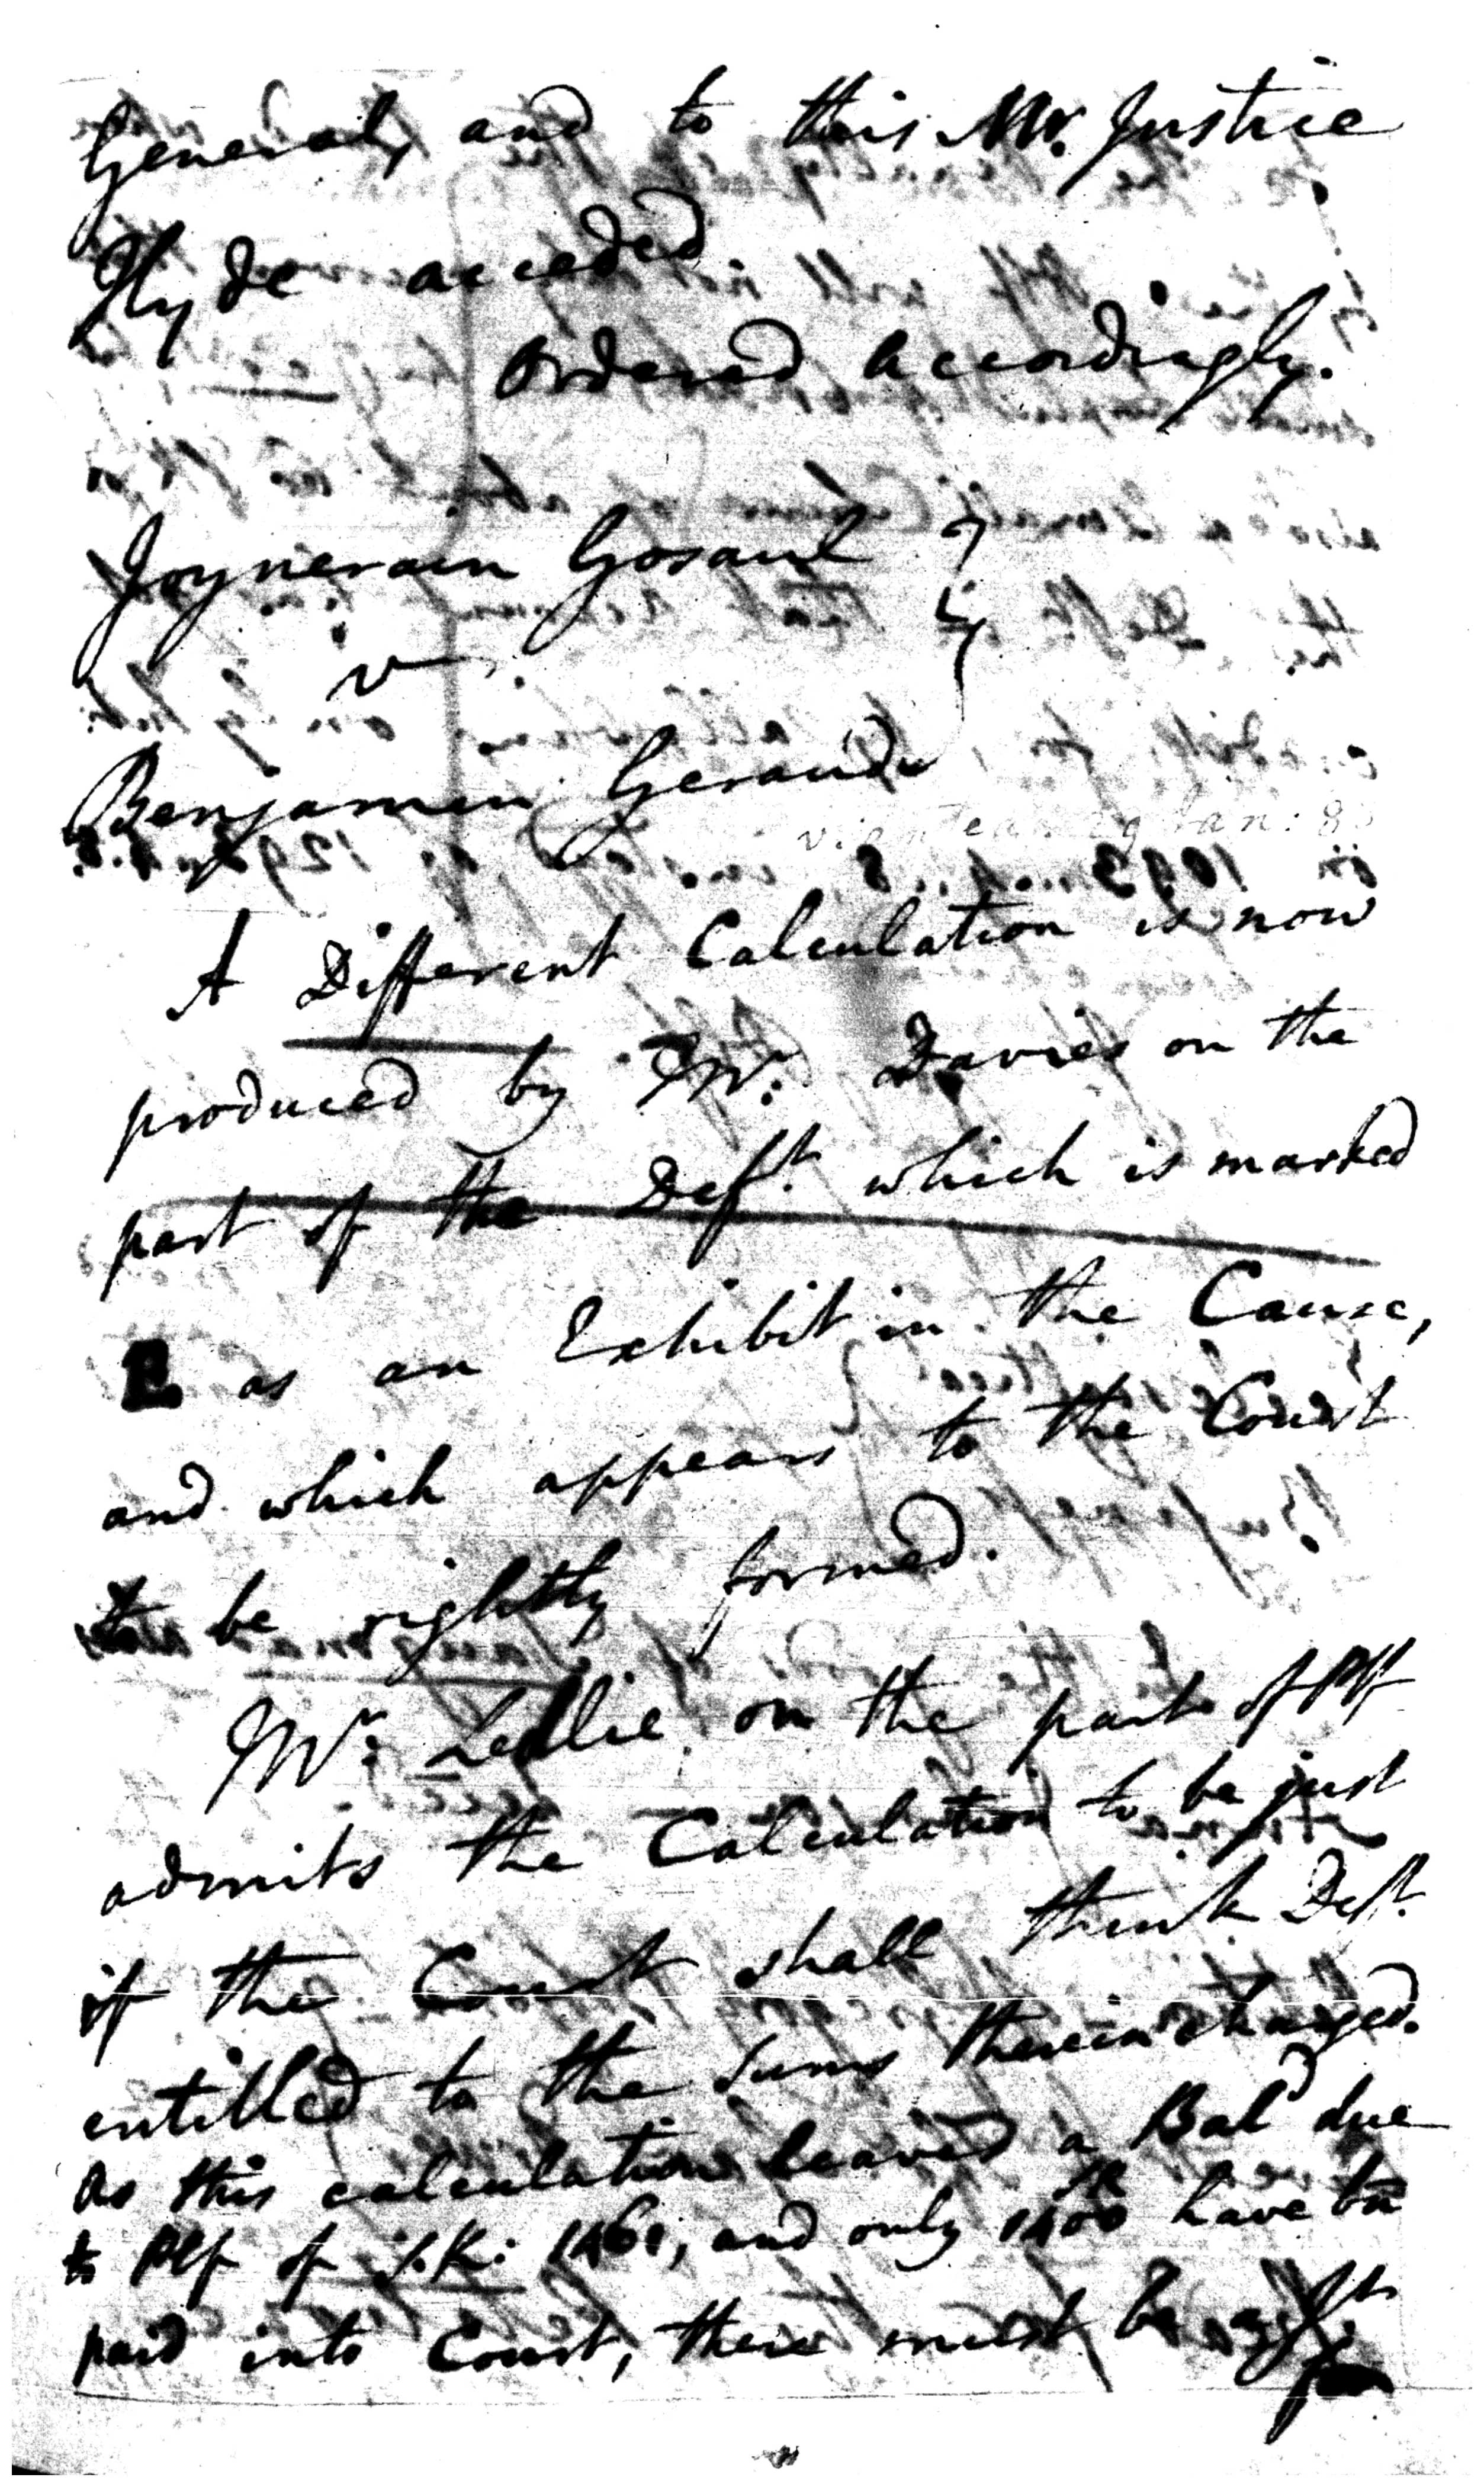 General, and to this Mr. Justice
Hyde acceded.
Ordered accordingly.
Joynerain Gosaul
v
Benjamin Geraud
A Different Calculation is now
produced by Mr: Davies on the
part of the Deft. which is marked
E as an Exhibit in the Cause,
and which appears to the Court
to be rightly formed.
Mr: Leslie on the part of Plf
admits the Calculation to be just
if the Court shall think Deft.
entitled to the Sums therein charged.
As this calculation leaves a Bal due
to Plf of S.R: 1461, and only 1400 SR have bn
paid into Court, there must be a Jt.